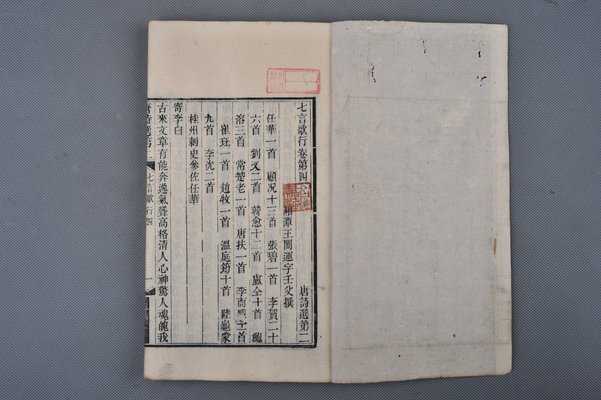 七言歌行卷第四 唐詩選第二
湘潭王闓運字壬父撰
任華一首 顧況十三首 張碧一首 李賀二十
六首 劉乂二首 韓愈十二首 盧仝十首 鮑
溶三首 常楚老一首 唐扶一首 李商隱三首
崔珏一首 趙牧一首 溫庭筠十首 陸龜蒙
九首 李沈二首
桂州刺史參佐任華
寄李白
古來文章有能奔逸氣聳高格清人心神驚人魂魄我
七言歌行四 一